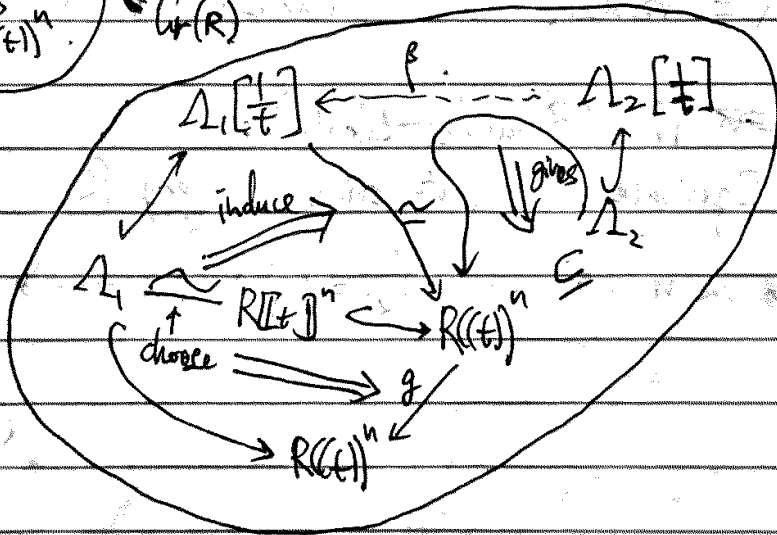 (t))ⁿ. Gr(R)
β
Λ₁[1/t] ← Λ₂[1/t]
induce ≃ gives Λ₂
Λ₁ ≃ R[[t]]ⁿ ↪ R((t))ⁿ ⊆
↑
choose
g
R((t))ⁿ